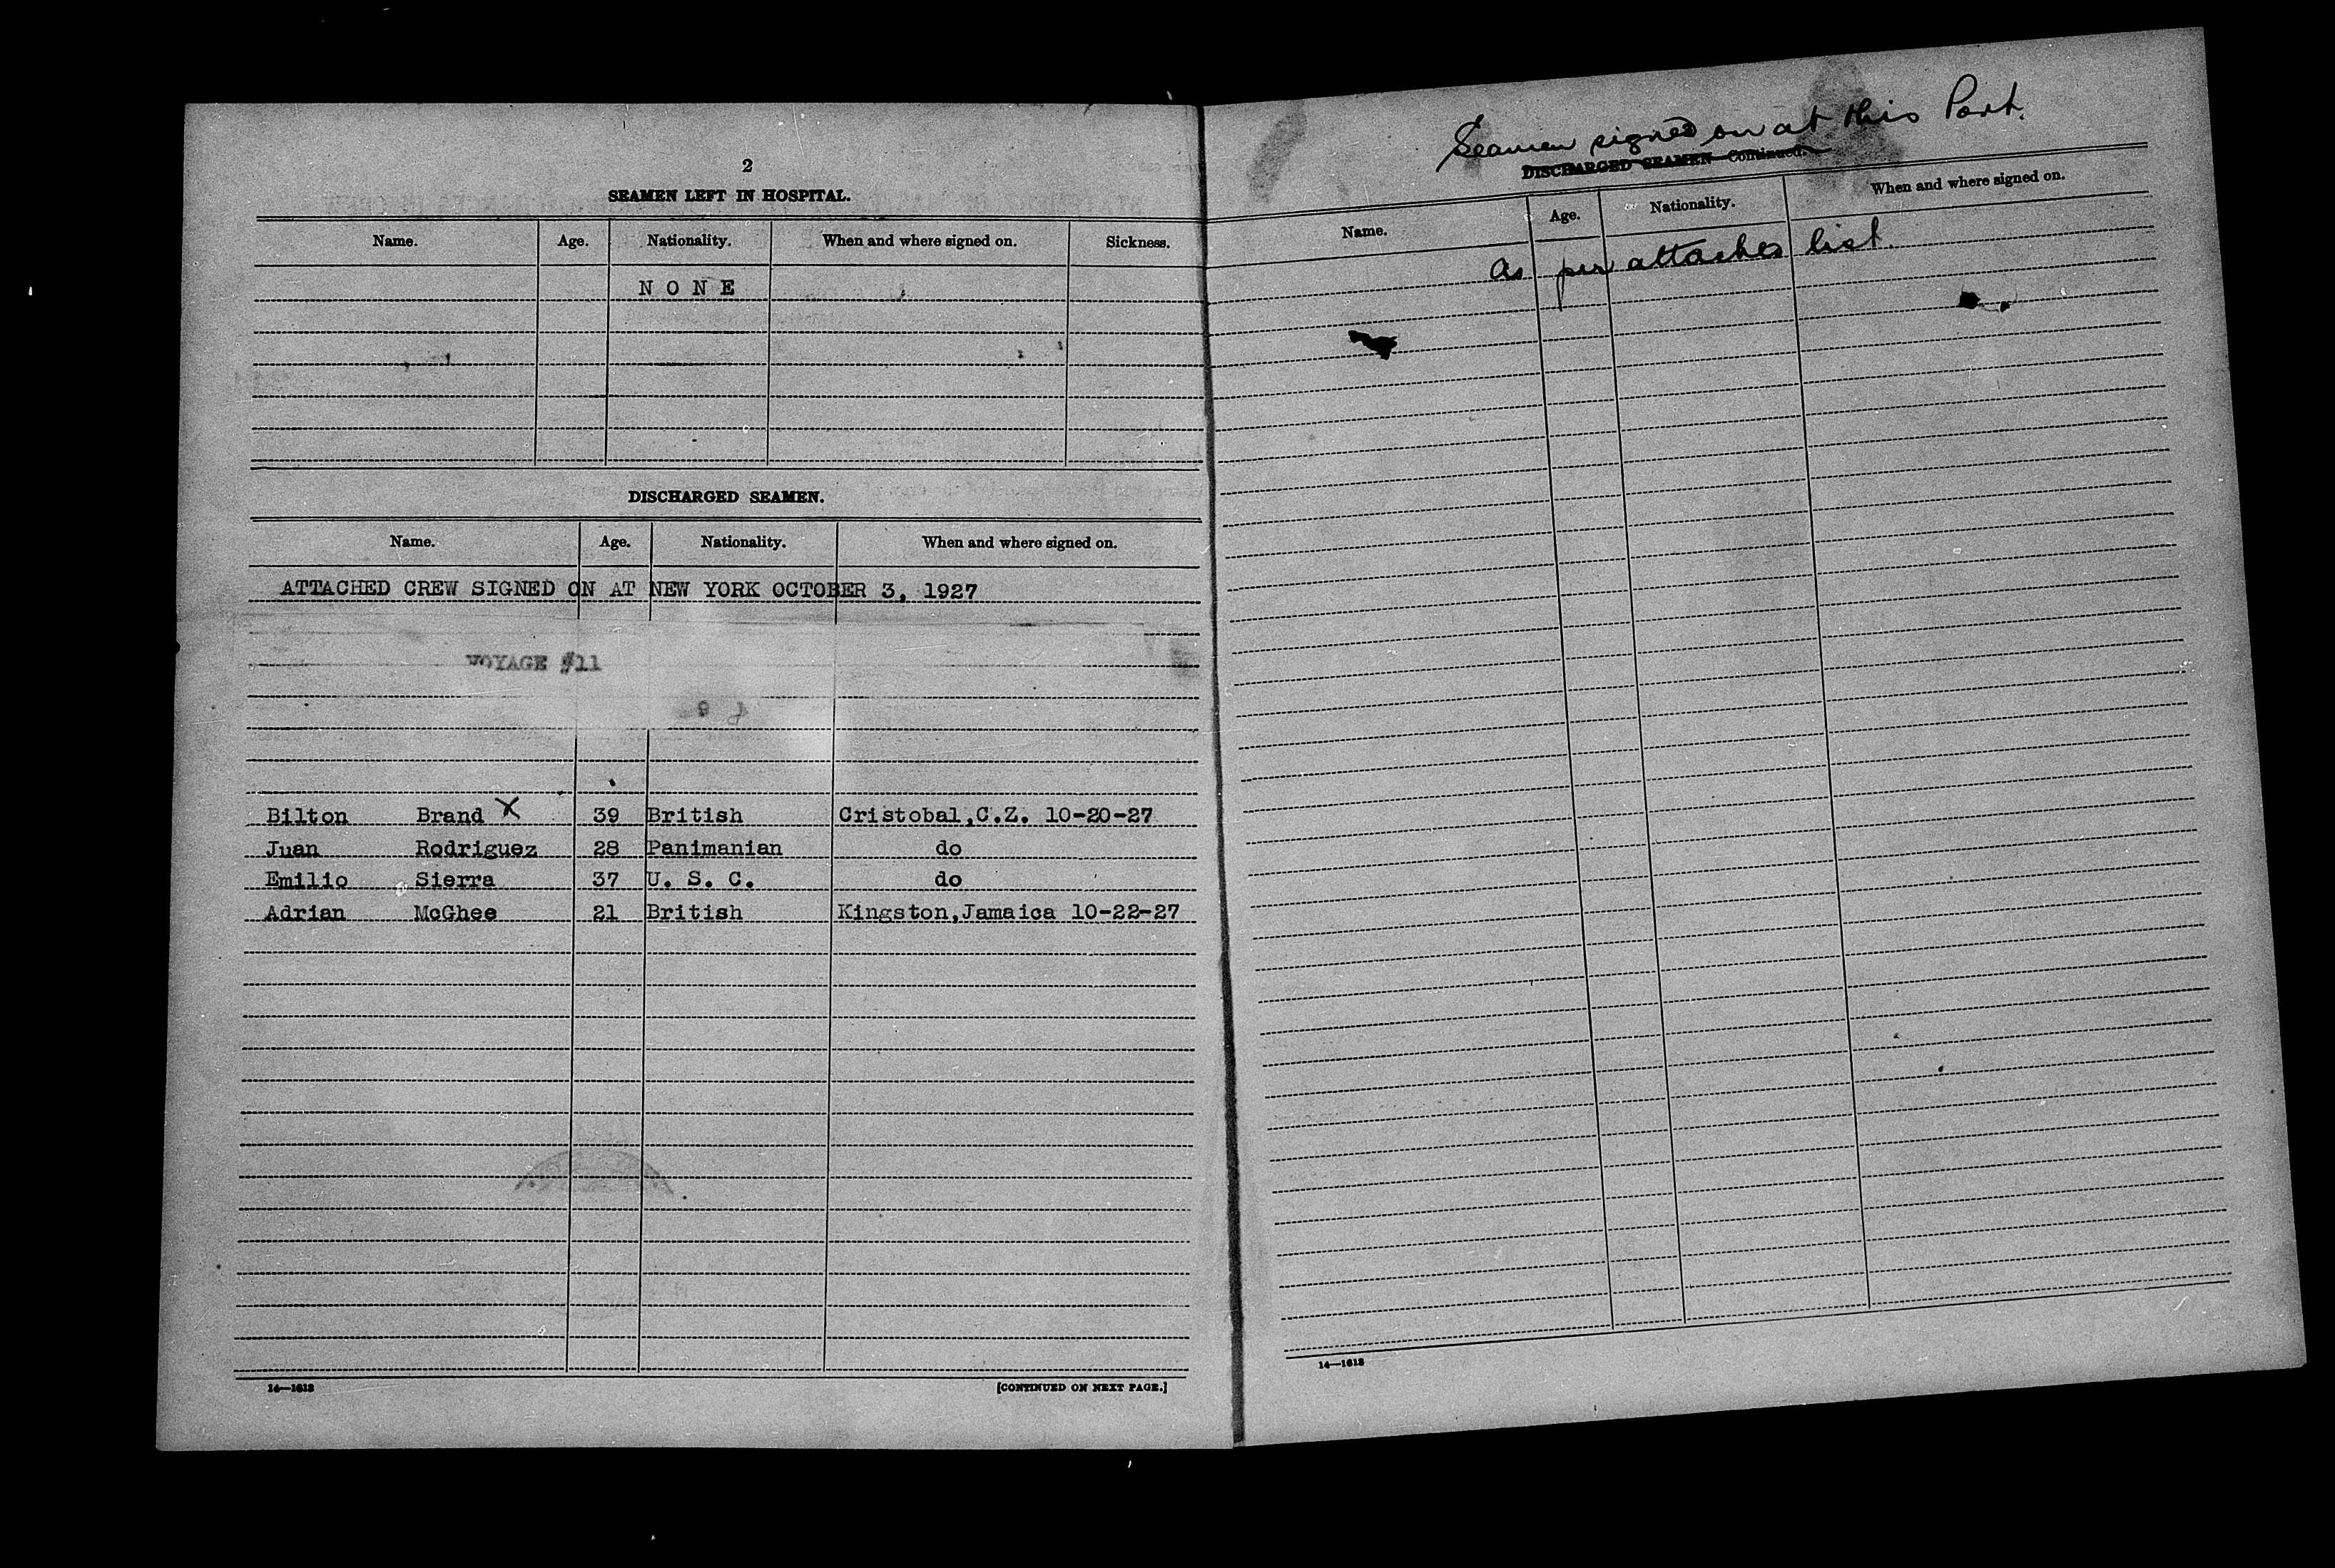 2
SEAMEN LEFT IN HOSPITAL.
Name. Age. Nationality. When and where signed on. Sickness.
N O N E
DISCHARGED SEAMEN.
Name. Age. Nationality. When and where signed on.
ATTACHED CREW SIGNED ON AT NEW YORK OCTOBER 3, 1927
VOYAGE #11
Bilton Brand X 39 British Cristobal,C.Z. 10-20-27
Juan Rodriguez 28 Panimanian do
Emilio Sierra 37 U. S. C. do
Adrian McGhee 21 British Kingston,Jamaica 10-22-27
14—1613
[CONTINUED ON NEXT PAGE.]
Seamen signed on at this Port.
DISCHARGED SEAMEN—Continued.
Name. Age. Nationality. When and where signed on.
As per attached list.
14—1613